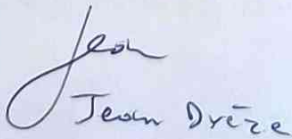 Jean
Jean Drèze